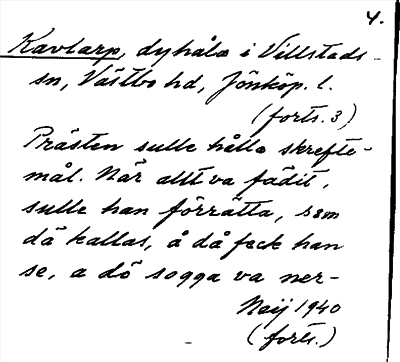 4.
Kavlarp, dyhåla i Villstads
sn, Västbo hd, Jönköp. l.
(forts. 3)
Prästen sulle hålla skrefte-
mål. När allt va fädit,
sulle han förrätta, som
dä kallas, å då feck han
se, a dö sogga va ner-
Neij 1940
(forts.)